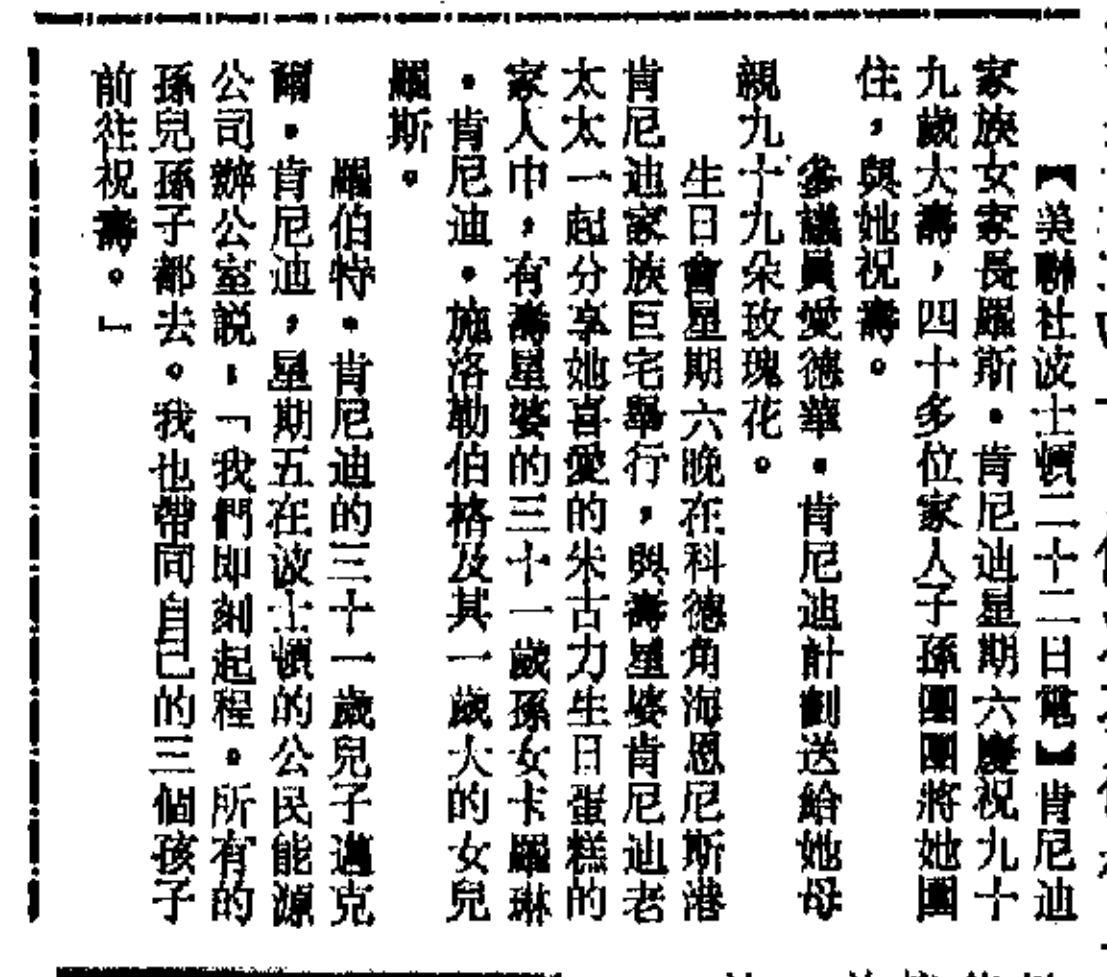 【美聯社波士頓二十二日電】肯尼迪
家族女家長羅斯・肯尼迪星期六慶祝九十
九歲大壽，四十多位家人子孫團團將她圍
住，與她祝壽。
參議員愛德華・肯尼迪計劃送給她母
親九十九朵玫瑰花。
生日會星期六晚在科德角海恩尼斯港
肯尼迪家族巨宅舉行，與壽星婆肯尼迪老
太太一起分享她喜愛的朱古力生日蛋糕的
家人中，有壽星婆的三十一歲孫女卡羅琳
・肯尼迪・施洛勒伯格及其一歲大的女兒
羅斯。
羅伯特・肯尼迪的三十一歲兒子邁克
爾・肯尼迪，星期五在波士頓的公民能源
公司辦公室説：「我們即刻起程。所有的
孫兒孫子都去。我也帶同自己的三個孩子
前往祝壽。」